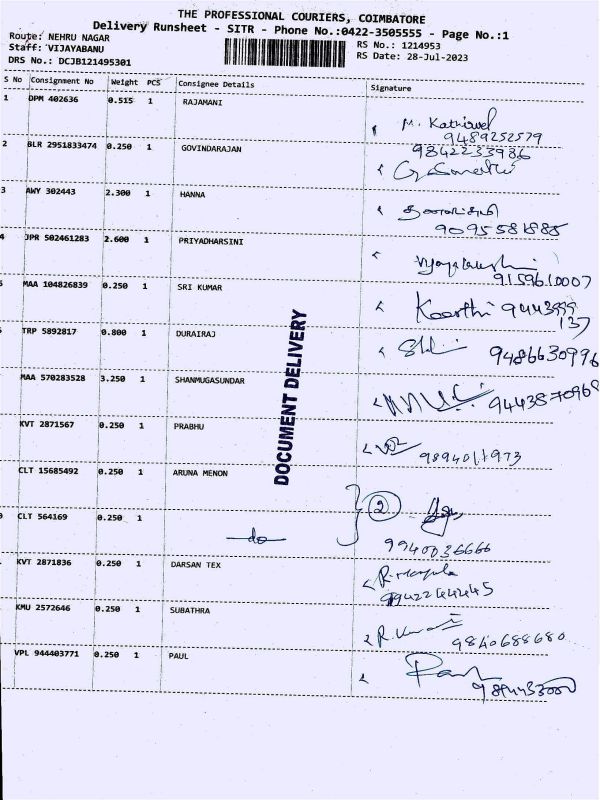 THE PROFESSIONAL COURIERS, COIMBATORE
Delivery Runsheet - SITR - Phone No.:0422-3505555 - Page No.:1
Route: NEHRU NAGAR
RS No.: 1214953
Staff: VIJAYABANU
RS Date: 28-Jul-2023
DRS No.: DCJB121495301
S No Consignment No Weight PCS Consignee Details Signature
1 DPM 402636 0.515 1 RAJAMANI
M. Kathirvel
9489252579
2 BLR 2951833474 0.250 1 GOVINDARAJAN
9842233986
3 AWY 302443 2.300 1 HANNA
9095581885
4 JPR 502461283 2.600 1 PRIYADHARSINI
9159610007
MAA 104826839 0.250 1 SRI KUMAR
Keerthi 9443999
137
TRP 5892817 0.800 1 DURAIRAJ
9486630996
MAA 570283528 3.250 1 SHANMUGASUNDAR
944387096
DOCUMENT DELIVERY
KVT 2871567 0.250 1 PRABHU
9894011973
CLT 15685492 0.250 1 ARUNA MENON
2
CLT 564169 0.250 1
do
9940036666
KVT 2871836 0.250 1 DARSAN TEX
9942244445
KMU 2572646 0.250 1 SUBATHRA
9840688680
VPL 944403771 0.250 1 PAUL
Paul